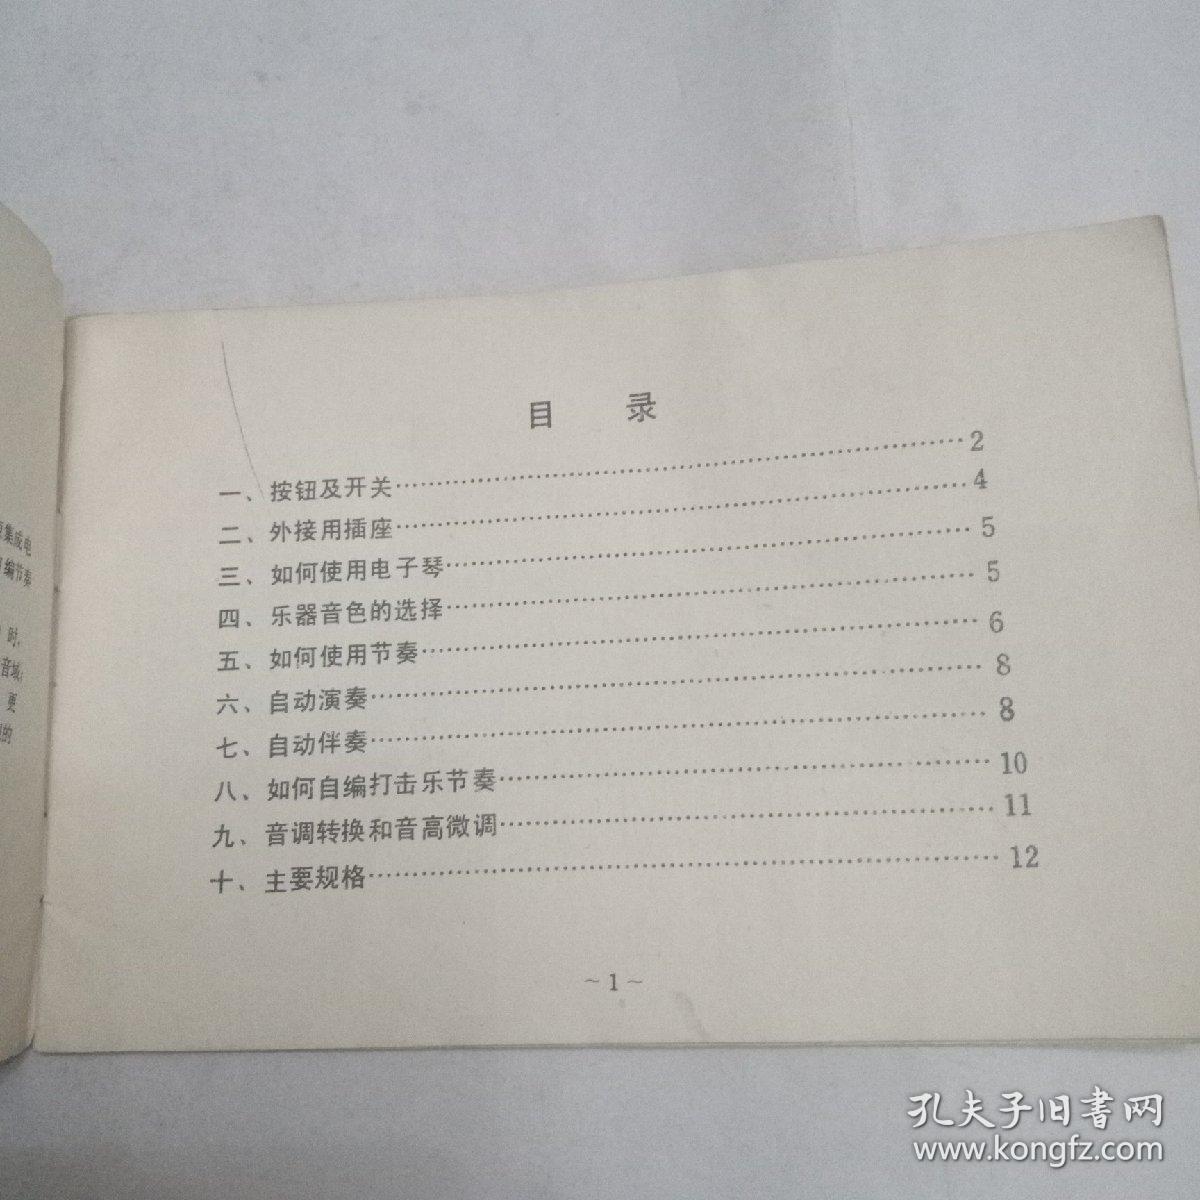 集成电
编节奏
时,
音域;
更
的
目 录
一、按钮及开关……………………2
二、外接用插座……………………4
三、如何使用电子琴……………………5
四、乐器音色的选择……………………5
五、如何使用节奏……………………6
六、自动演奏……………………8
七、自动伴奏……………………8
八、如何自编打击乐节奏……………………10
九、音调转换和音高微调……………………11
十、主要规格……………………12
~1~
孔夫子旧书网
www.kongfz.com